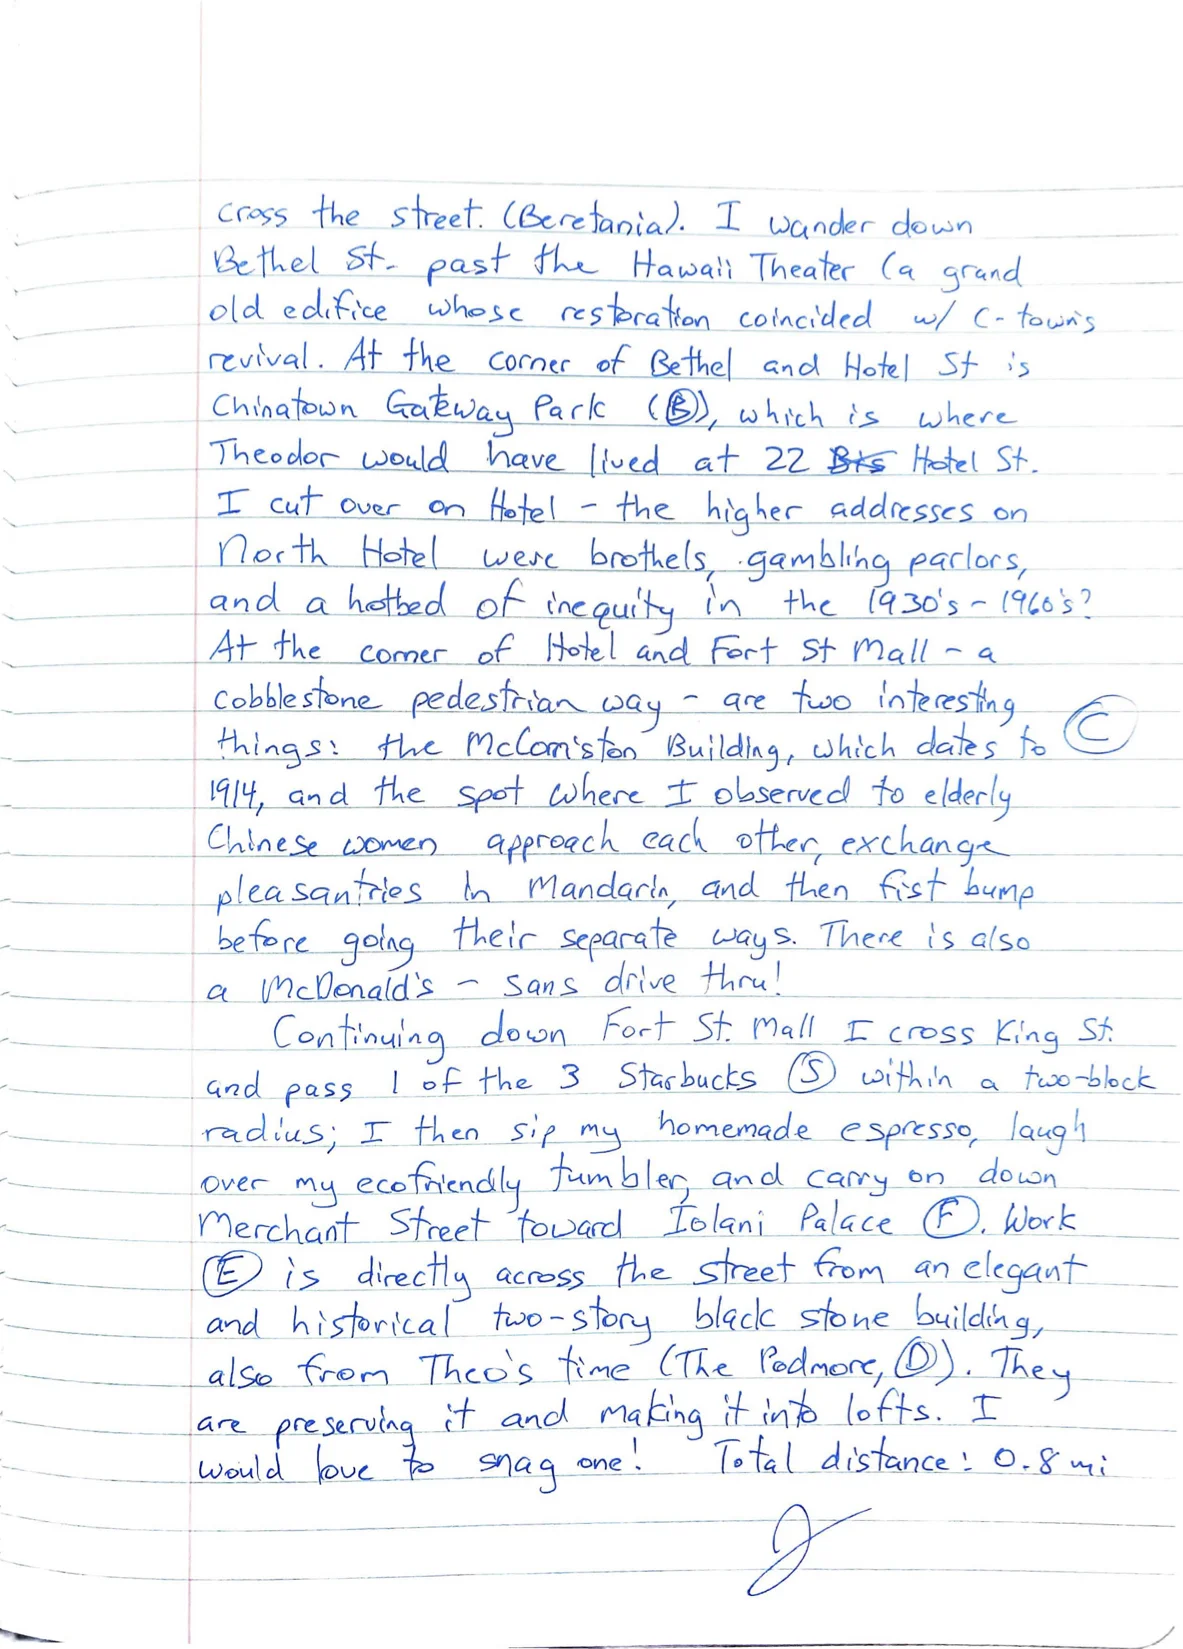 cross the street. (Beretania). I wander down
Bethel St. past the Hawaii Theater (a grand
old edifice whose restoration coincided w/ C-town's
revival. At the corner of Bethel and Hotel St is
Chinatown Gateway Park (B), which is where
Theodor would have lived at 22 Hotel St.
I cut over on Hotel - the higher addresses on
North Hotel were brothels, gambling parlors,
and a hotbed of inequity in the 1930's - 1960's?
At the corner of Hotel and Fort St Mall - a
cobblestone pedestrian way - are two interesting
things: the McCorriston Building, which dates to C
1914, and the spot where I observed to elderly
Chinese women approach each other, exchange
pleasantries in Mandarin, and then fist bump
before going their separate ways. There is also
a McDonald's - sans drive thru!
Continuing down Fort St. Mall I cross King St.
and pass 1 of the 3 Starbucks (S) within a two-block
radius; I then sip my homemade espresso, laugh
over my ecofriendly tumbler, and carry on down
Merchant Street toward Iolani Palace (F). Work
(E) is directly across the street from an elegant
and historical two-story black stone building,
also from Theo's time (The Podmore, (D)). They
are preserving it and making it into lofts. I
would love to snag one! Total distance: 0.8 mi
J